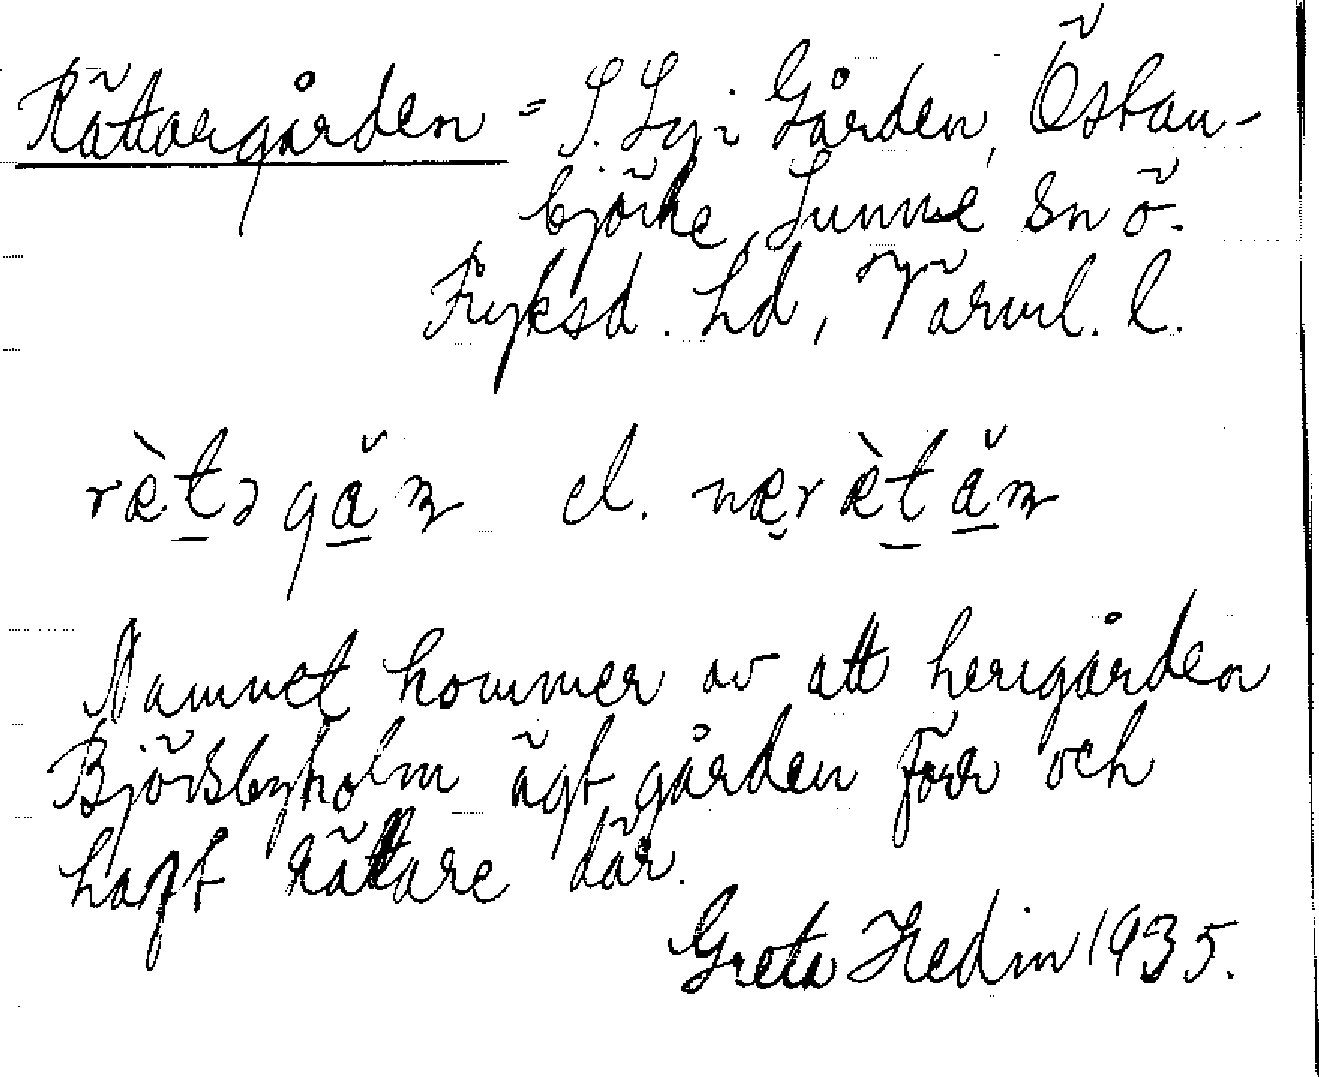 Rättaregården = S. Lgh i Gården, Östan-
björke, Sunne sn ö.
Fryksd. hd, Värml. l.
ræ̀təgan el. næræ̀tan
Namnet kommer av att herrgården
Björsbyholm ägt gården förr och
haft rättare där.
Greta Hedin 1935.